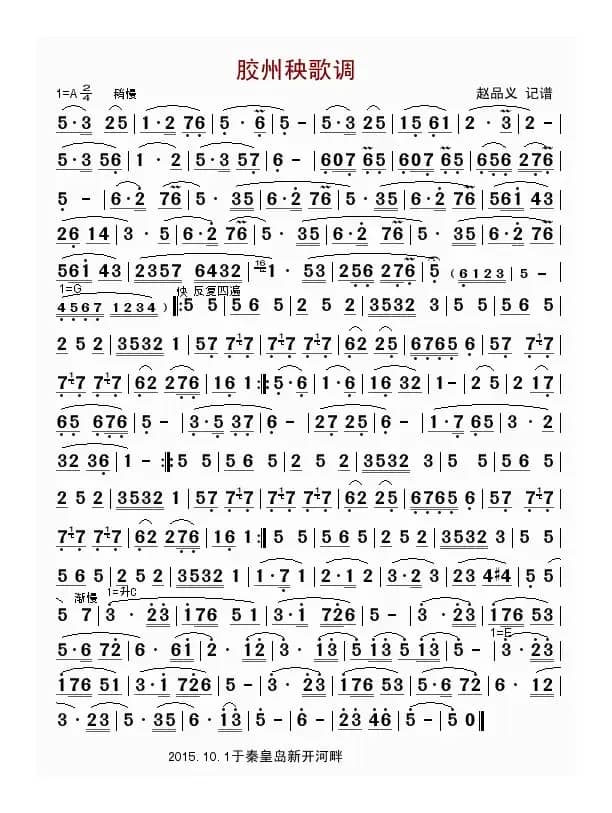 胶州秧歌调
1=A 2/4 稍慢 赵品义 记谱
5·3 25|1·2 76|5·6|5 -|5·3 25|15 61|2·3|2 -|
5·3 56|1·2|5·3 57|6 -|607 65|607 65|656 276|
5 -|6·2 76|5·35|6·2 76|5·35|6·2 76|561 43|
26 14|3·5|6·2 76|5·35|6·2 76|5·35|6·2 76|
561 43|2357 6432|16 1·53|256 276|5 (6123|5 -|
1=G 快 反复四遍
4567 1234)‖:5 5|56 5|2 5 2|3532 3|5 5|56 5|
2 5 2|3532 1|57 717|717 717|62 25|6765 6|57|
717 717|62 276|16 1:‖:5·6|1·6|16 32|1-|2 5|2 17|
65 676|5 -|3·5 37|6 -|27 25|6 -|1·7 65|3·2|
32 36|1 -:‖:5 5|56 5|2 5 2|3532 3|5 5|56 5|
2 5 2|3532 1|57 717|717 717|62 25|6765 6|57|
717 717|62 276|16 1:‖5 5|565|252|3532 3|5 5|
56 5|2 5 2|3532 1|1·7 1|2·1 2|3·2 3|23 4#4|5 5|
渐慢 1=升C
5 7|3·23|176 51|3·1 726|5 -|3·23|176 53|
1=E
5·6 72|6·61|2·12|3·23|513 513|513 5|3·23|
176 51|3·1 726|5 -|3·23|176 53|5·6 72|6·12|
3·23|5·35|6·13|5 -|6·23 46|5 -|5 0‖
2015.10.1于秦皇岛新开河畔